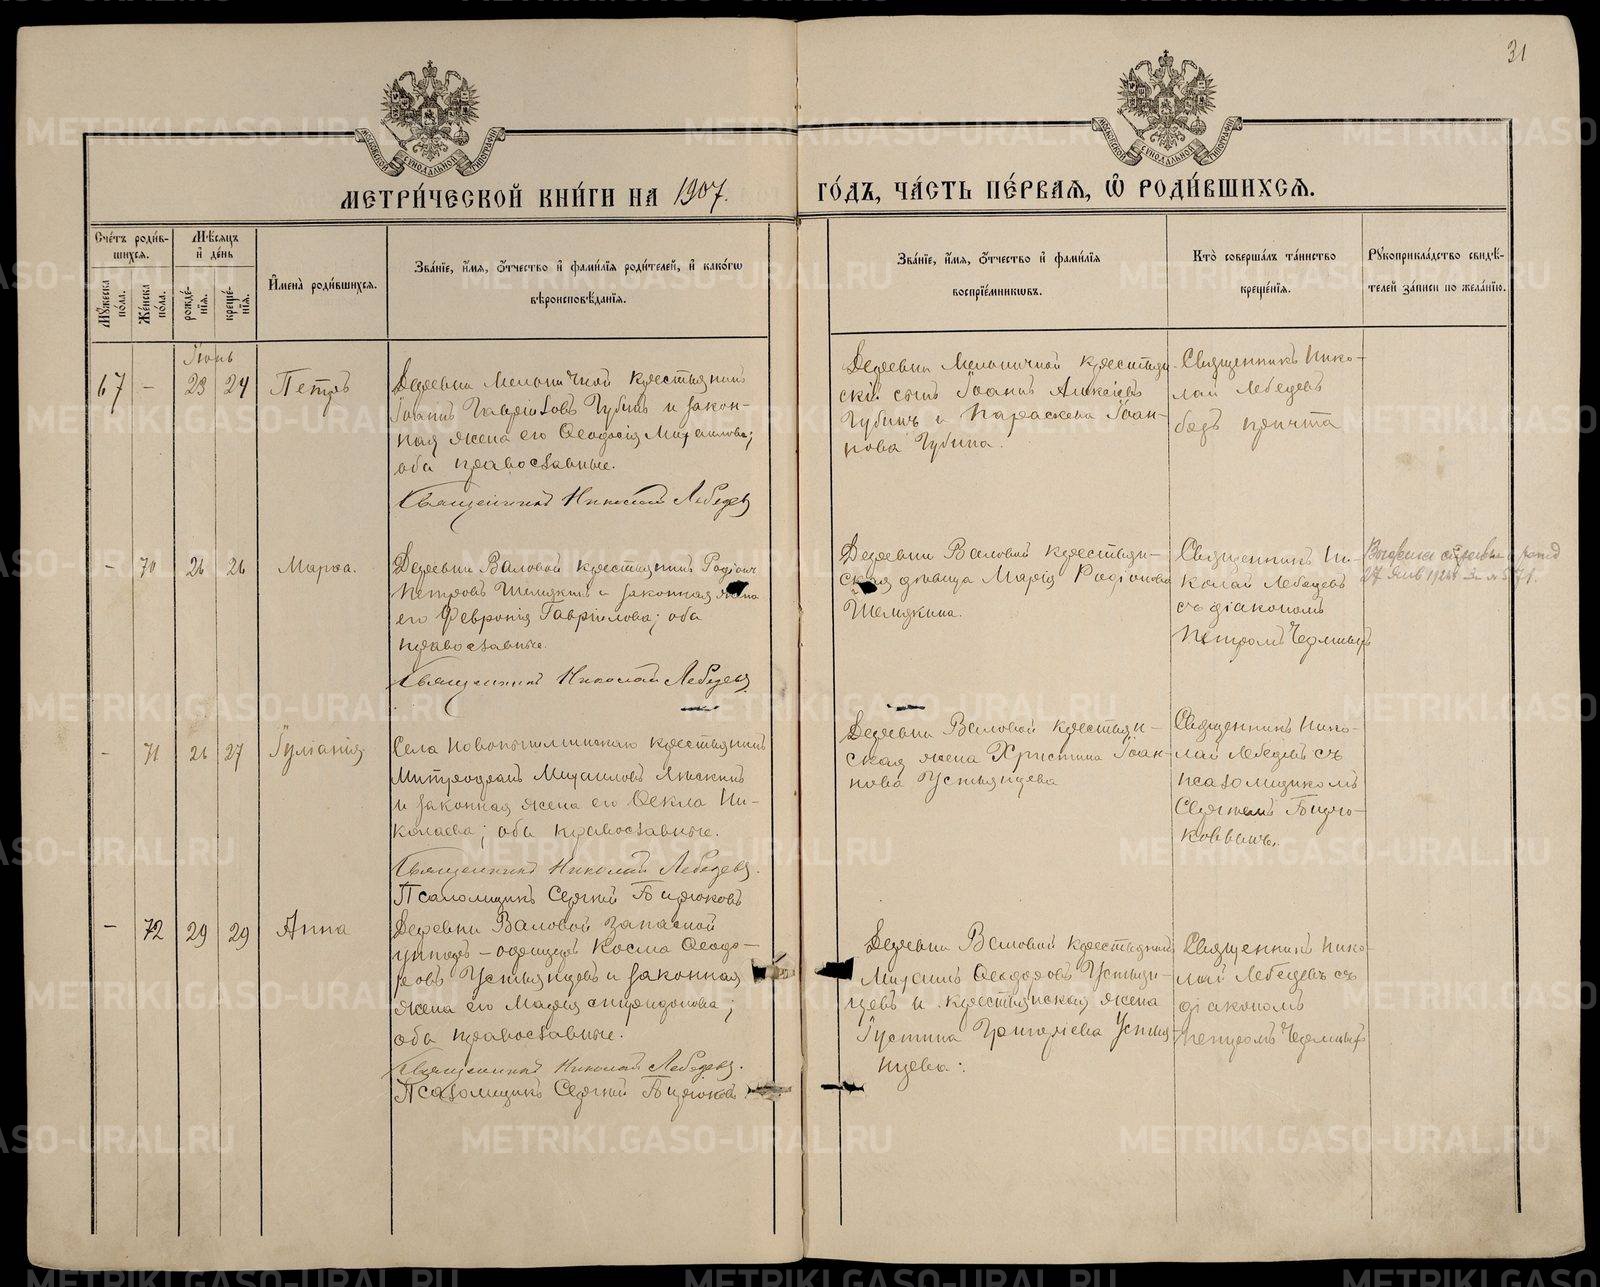 31
МЕТРИ́ЧЕСКОЙ КНИ́ГИ НА 1907.
ГО́ДЪ, ЧА́СТЬ ПЕ́РВАЯ, Ѿ РОДИ́ВШИХСЯ.
Сче́тъ роди́в-
шихся.
Мꙋ́жеска по́ла.
Же́нска по́ла.
Мѣ́сяцъ и де́нь
рожде́-нїя.
креще́-нїя.
И҆мена̀ роди́вшихся.
Зва́нїе, и҆́мя, ѻ҆́тчество и҆ фами́лїя роди́телей, и҆ како́гѡ
вѣроисповѣ́данїя.
Зва́нїе, и҆́мя, ѻ҆́тчество и҆ фами́лїя
воспрїе́мникѡвъ.
Кто̀ соверша́лъ та́инство
креще́нїя.
Рꙋкоприкла́дство свидѣ́-
телей за́писи по жела́нїю.
Іюнь
67 - 23 24 Петръ
Деревни Мельничной крестьянинъ
Іоаннъ Гавріиловъ Губинъ и закон-
ная жена его Ѳеодосія Михаилова;
оба православные.
Священникъ Николай Лебедевъ
Деревни Мельничной крестьян
скій сынъ Іоаннъ Алексіевъ
Губинъ и Параскева Іоан-
нова Губина.
Священникъ Нико-
лай Лебедевъ
безъ причта
- 70 26 26 Марѳа.
Деревни Валовой крестьянинъ Родіонъ
Петровъ Шемякинъ и законная жена
его Февронія Гавріилова; оба
православные.
Священникъ Николай Лебедевъ
Деревни Валовой крестьян-
ская дѣвица Марія Родіонова
Шемякина.
Священникъ Ни-
колай Лебедевъ
съ діакономъ
Петромъ
27 Янв 1924
- 71 26 27 Іуліанія
Села Новопышминскаго крестьянинъ
Митрофанъ Михаиловъ
и законная жена его Ѳекла Ни-
колаева; оба православные.
Священникъ Николай Лебедевъ.
Псаломщикъ Сергій Бирюковъ
Деревни Валовой крестьян-
ская жена Христина Іоан-
нова Устьянцева
Священникъ Нико-
лай Лебедевъ съ
псаломщикомъ
Сергіемъ Бирю-
ковымъ.
- 72 29 29 Анна
Деревни Валовой запасной
унтеръ-офицеръ Косма Ѳеодо-
ровъ Устьянцевъ и законная
жена его Марія Спиридонова;
оба православные.
Священникъ Николай Лебедевъ.
Псаломщикъ Сергій Бирюковъ.
Деревни Валовой крестьянинъ
Ѳеодоровъ Устьян-
цевъ и крестьянская жена
Іустина Григоріева Устьян-
цева.
Священникъ Нико-
лай Лебедевъ съ
діакономъ
Петромъ
METRIKI.GASO-URAL.RU